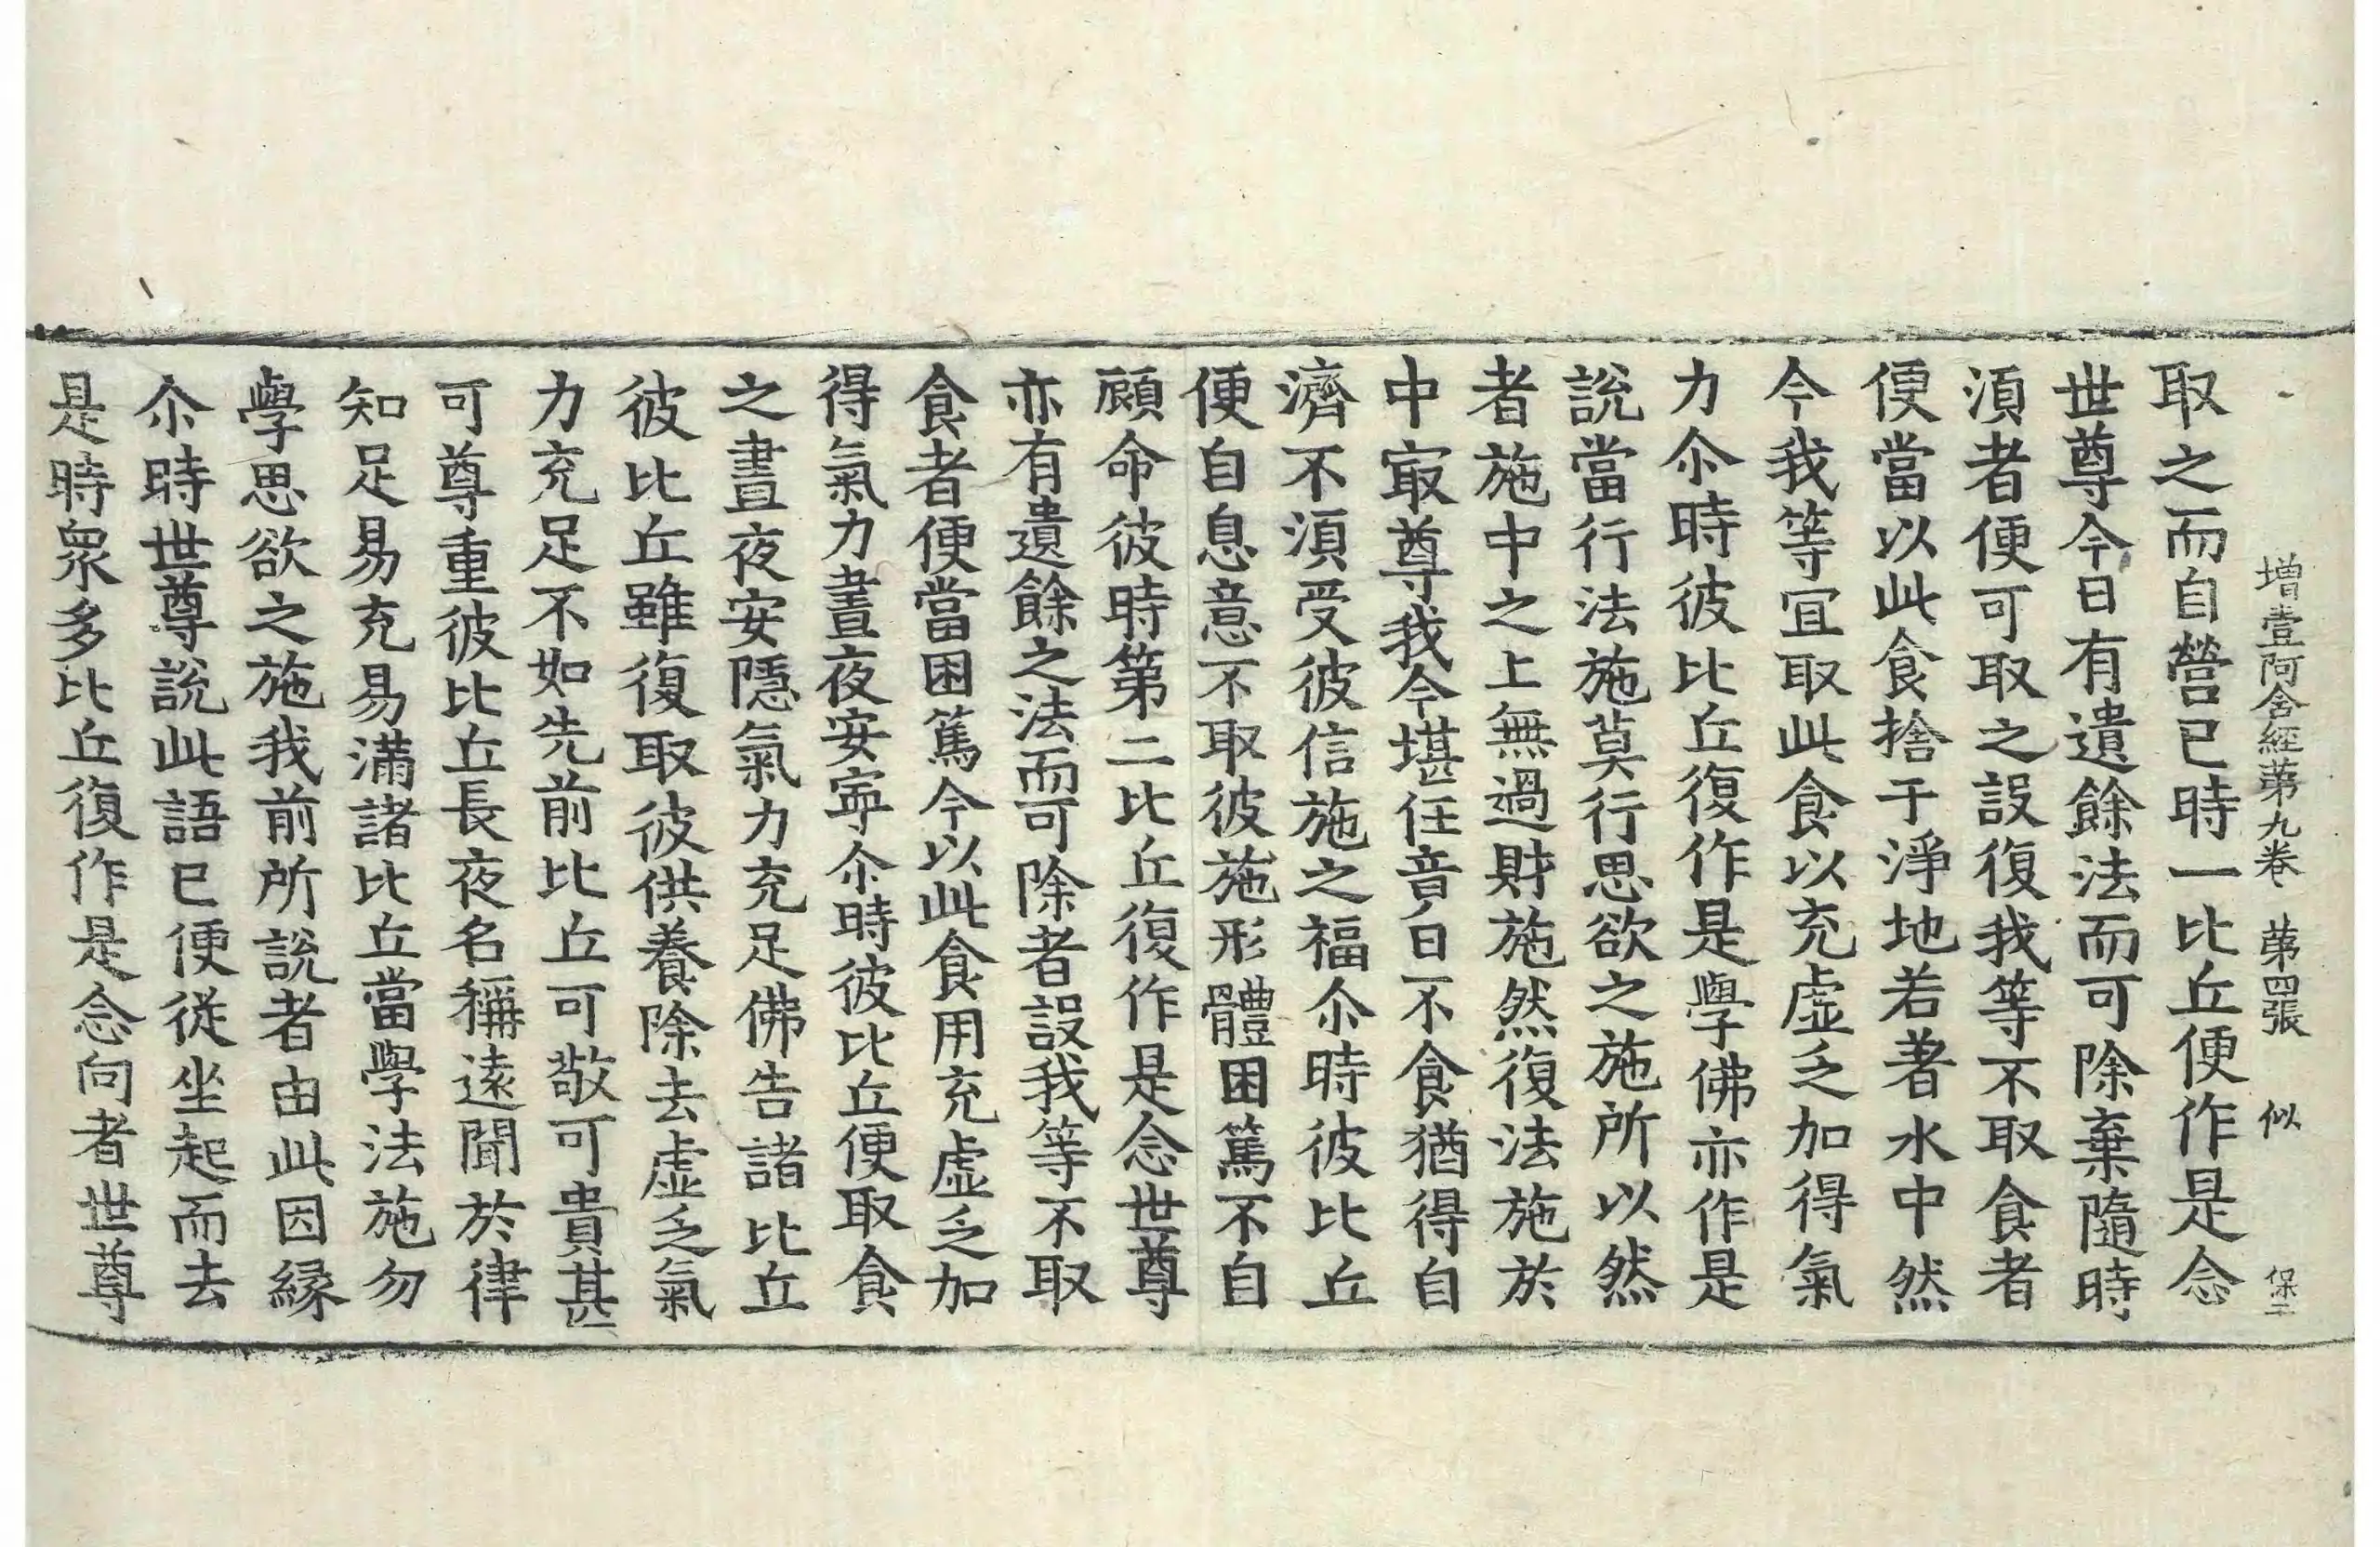 增壹阿含經苐九卷 苐四張 似 保二
取之而自營已時一比丘便作是念
世尊今日有遺餘法而可除棄隨時
湏者便可取之設復我等不取食者
便當以此食捨于淨地若著水中然
今我等宜取此食以充虛乏加得氣
力尒時彼比丘復作是學佛亦作是
說當行法施莫行思欲之施所以然
者施中之上無過財施然復法施於
中㝡尊我今堪任竟日不食猶得自
濟不湏受彼信施之福尒時彼比丘
便自息意不取彼施形體困篤不自
顧命彼時第二比丘復作是念世尊
亦有遺餘之法而可除者設我等不取
食者便當困篤今以此食用充虛乏加
得氣力晝夜安寧尒時彼比丘便取食
之晝夜安隱氣力充足佛告諸比丘
彼比丘雖復取彼供養除去虛乏氣
力充足不如先前比丘可敬可貴甚
可尊重彼比丘長夜名稱遠聞於律
知足易充易滿諸比丘當學法施勿
學思欲之施我前所說者由此因緣
尒時世尊說此語已便從坐起而去
是時衆多比丘復作是念向者世尊